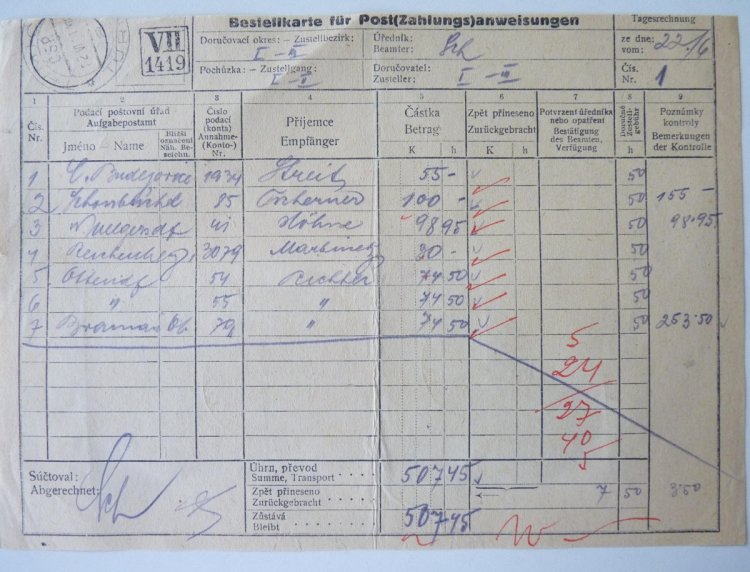 Bestellkarte für Post(Zahlungs)anweisungen
Tagesrechnung
VII
1419
Doručovací okres: - Zustellbezirk:
Úředník:
Beamter: Sch
ze dne:
vom: 22/6
Pochůzka: - Zustellgang:
Doručovatel:
Zusteller: I - III
Čís.
Nr. 1
1 2 3 4 5 6 7 8 9
Čís. Nr.
Podací poštovní úřad
Aufgabepostamt
Jméno - Name
Bližší označení
Näh. Bezeichn.
Číslo podací (konta)
Annahme- (Konto-) Nr.
Příjemce
Empfänger
Částka
Betrag
K h
Zpět přineseno
Zurückgebracht
K h
Potvrzení úředníka nebo opatření
Bestätigung des Beamten, Verfügung
h
Poznámky kontroly
Bemerkungen der Kontrolle
1 1934 Streit 55 - 50
2 85 100 - 50 155 -
3 41 Höhne 98 95 50 98·95
4 Reichenberg 3079 30 - 50
5 Ottendf 54 Richter 74 50 50
6 " 55 " 74 50 50
7 79 " 74 50 50 253·50
5
24
27
40
5
Súčtoval:
Abgerechnet: Sch
Úhrn, převod
Summe, Transport 507 45
Zpět přineseno
Zurückgebracht 7 50 3·50
Zůstává
Bleibt 507 45